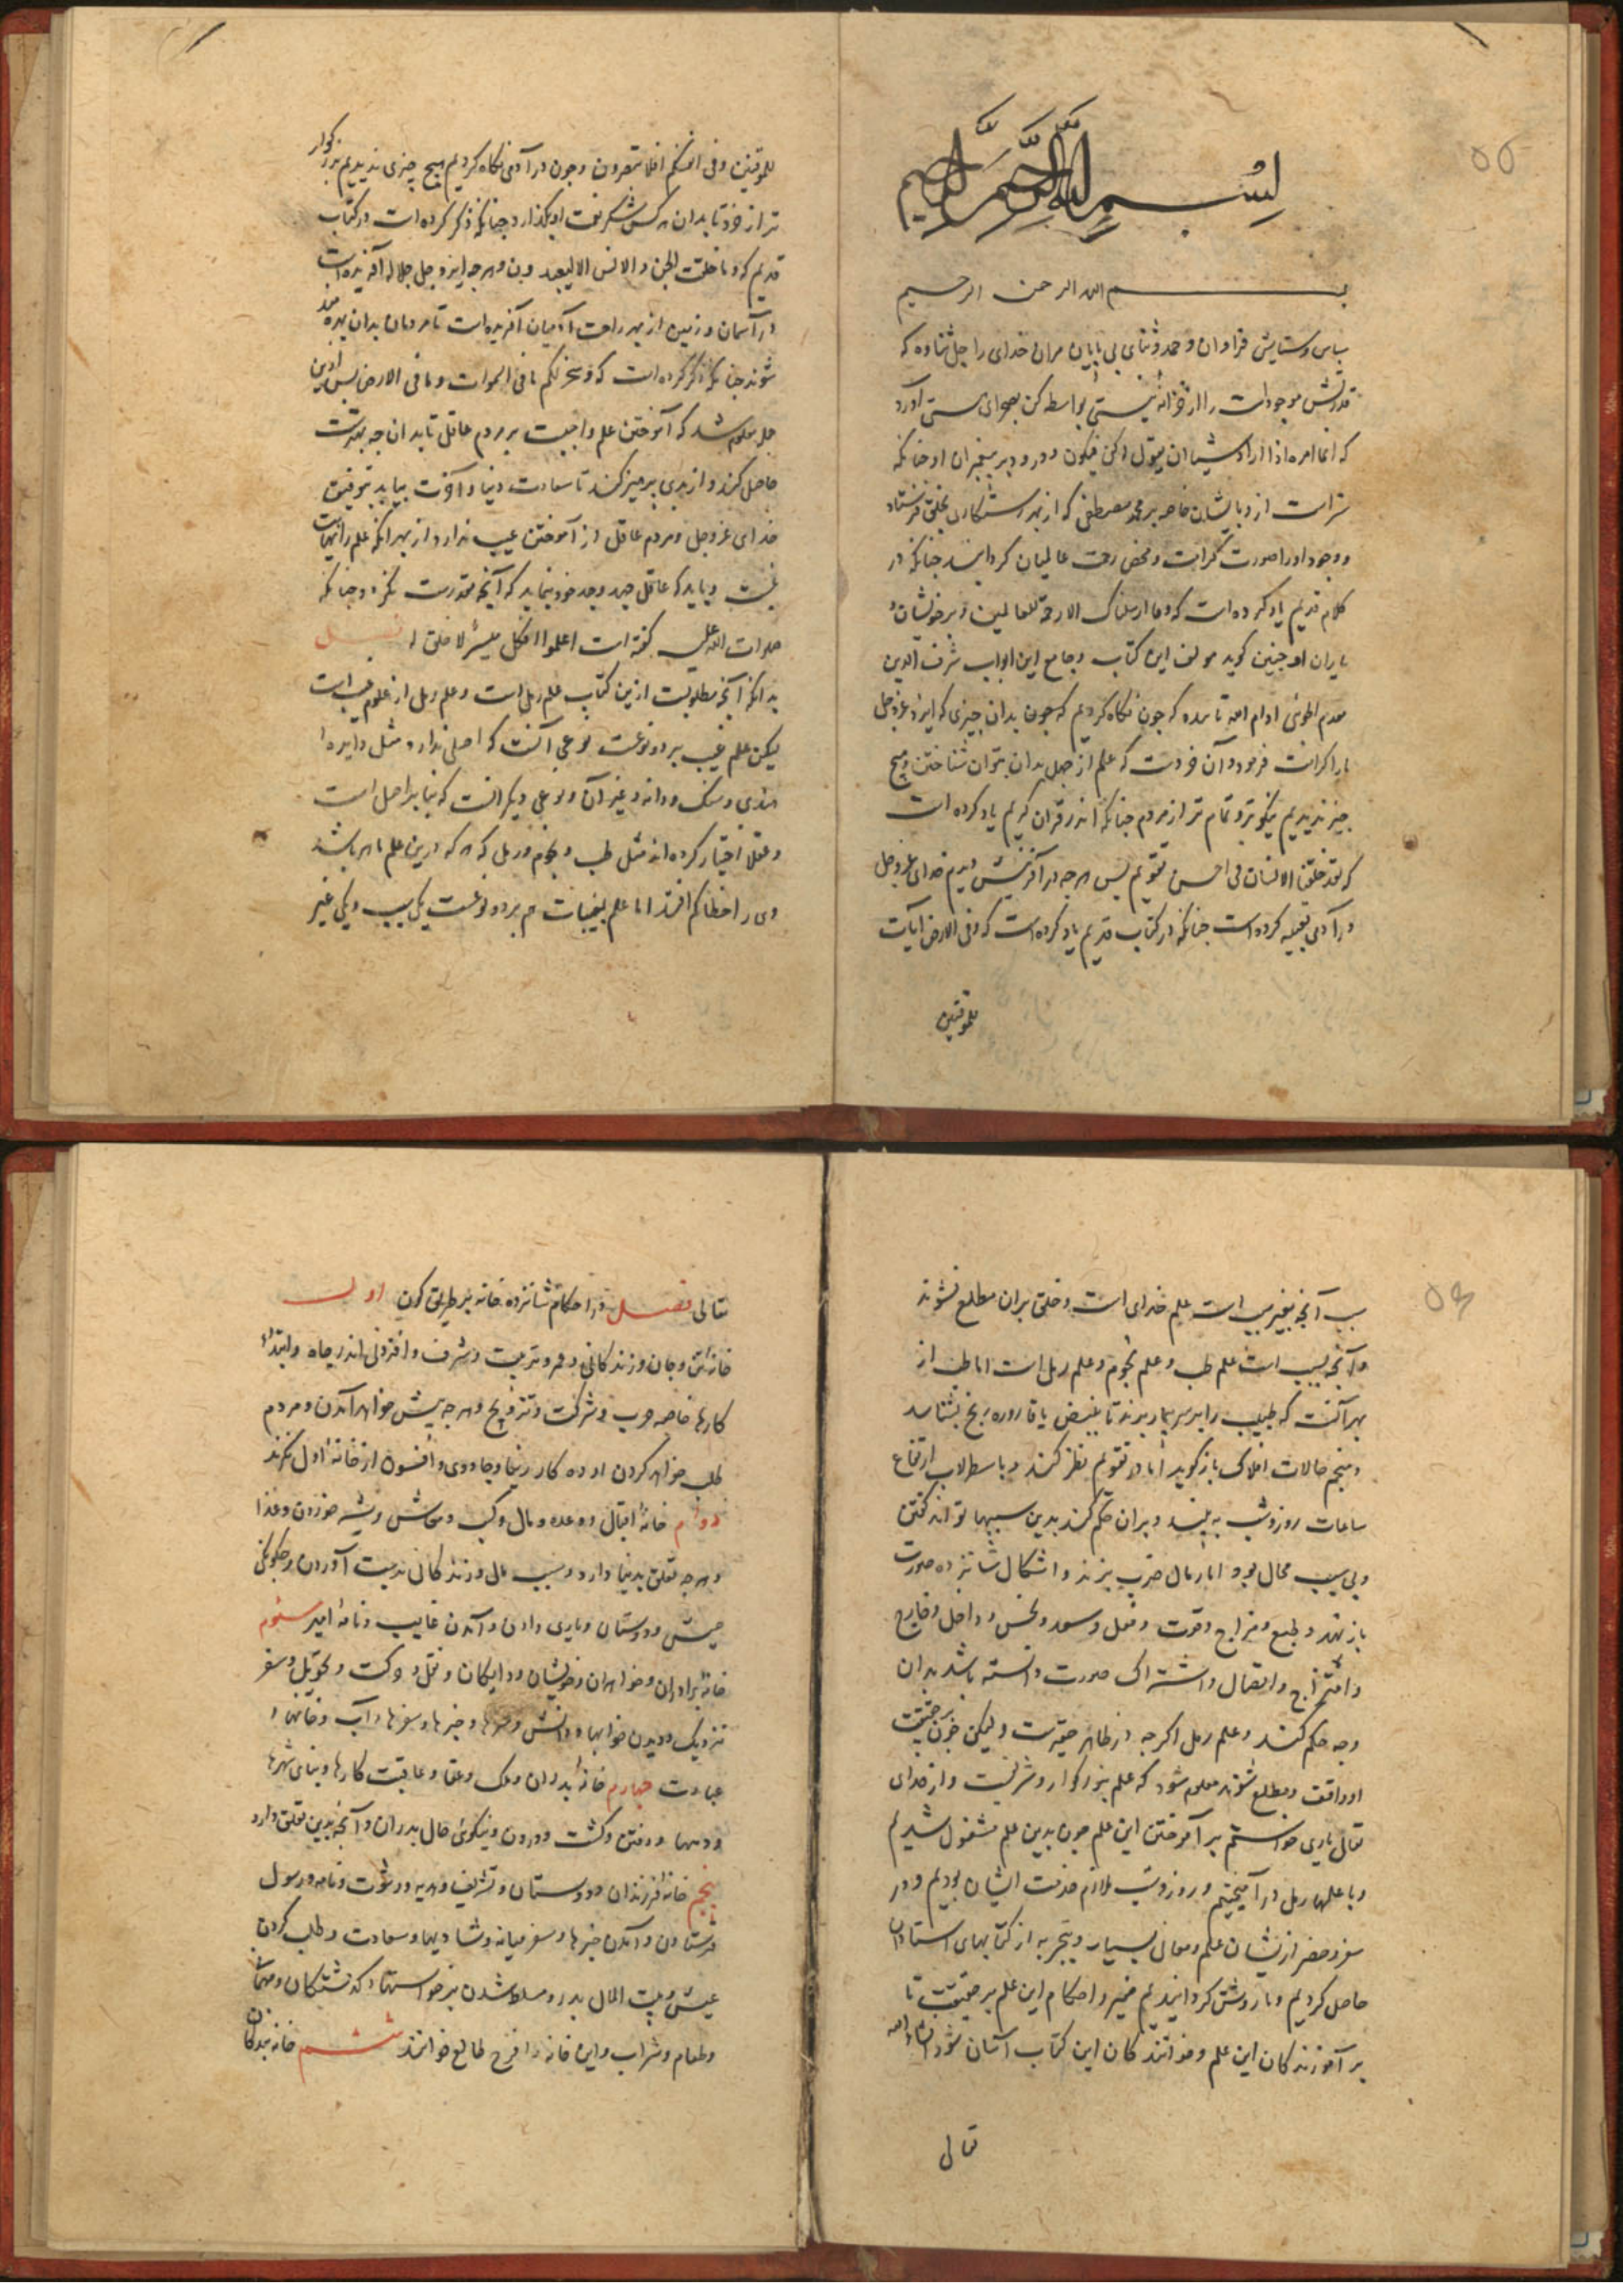 بسم الله الرحمن الرحیم
بسم الله الرحمن الرحیم
سپاس و ستایش فراوان و حمد و ثنای بی پایان مران خدای را جل ثناوه که
قدرتش موجودات را از خزانه نیستی بواسطه کن بصحرای هستی آورد
که انما امره اذا اراد شیئا ان یقول له کن فیکون و درود بر پیغمبران او جنانکه
سزاست از وبایشان خاصه بر محمد مصطفی که از بهر رستکاری بخلق فرستاد
و وجود او را صورت کرامت و محض رحمت عالمیان کردانید جنانکه در
کلام قدیم یاد کرده است که و ما ارسلناک الا رحمة للعالمین و بر خویشان و
یاران او جنین کوید مولف این کتاب و جامع این ابواب شرف الدین
ادام الله تاییده که جون نکاه کردیم که جون بدان چیزی که ایزد عزوجل
ما را کرامت فرمود و آن خردست که علم از جهل بدان بتوان شناختن و هیچ
چیز ندیدیم نیکوتر و تمام تر از مردم جنانکه اندر قران کریم یاد کرده است
که لقد خلقنا الانسان فی احسن تقویم پس هرجه در آفرینش دیدم خدای عزوجل
در آدمی تعبیه کرده است جنانکه در کتاب قدیم یاد کرده است که و فی الارض آیات
للموقنین
للموقنین و فی انفسکم افلا تبصرون و جون در آدمی نکاه کردیم هیچ چیزی ندیدیم بزرکوار
تر از خرد تا بدان هرکس شکر نعمت او بکذارد جنانکه ذکر کرده است در کتاب
قدیم که و ما خلقت الجن و الانس الا لیعبدون و هرجه ایزد جل جلاله آفریده است
در آسمان و زمین از بهر راحت آدمیان آفریده است تا مردمان بدان بهره مند
شوند جنانکه ذکر کرده است که و سخر لکم ما فی السموات و ما فی الارض پس ازین
جمله معلوم شد که آموختن علم واجبست بر مردم عاقل تا بدان جه بهترست
حاصل کند و از بدی پرهیز کند تا سعادت دنیا و آخرت بیابد بتوفیق
خدای عزوجل و مردم عاقل از آموختن عیب ندارد از بهر انکه علم را نهایت
نیست و باید که عاقل جهد و جد خود بنماید که آنجه مقدرست نکردد جنانکه
صلوات الله علیه کفته است اعملوا فکل میسر لما خلق له فصل
بدانکه آنجه مطلوبست ازین کتاب علم رمل است و علم رمل از علوم غیب است
لیکن علم غیب بر دو نوعست نوعی آنست که اصلی ندارد مثل دایره
مندی و سنک و دانه و غیر آن و نوعی دیکر آنست که بنا بر اصل است
و عقلا اختیار کرده اند مثل طب و نجوم و رمل که هرکه درین علم ماهر باشد
وی را خطا کم افتد اما علم بغیبات هم بر دو نوعست یکی بسبب و یکی بغیر
سبب آنجه بغیر سبب است علم خدای است و خلق بران مطلع نشوند
و آنجه بسبب است علم طب و علم نجوم و علم رمل است اما طب از
بهر آنست که طبیب را بر سر بیمار برند تا بنبض یا قاروره رنج بشناسد
و منجم حالات افلاک باز کوید اما در تقویم نظر کند و باسطرلاب ارتفاع
ساعات روز و شب به بیند و بران حکم کند بدین سببها تواند کفتن
و بی سبب محال بود اما رمال ضرب بزند و اشکال شانزده صورت
باز نهد و طبع و مزاج و قوت و فعل و سعد و نحس و داخل و خارج
و امتزاج و اتصال و اشتراک صورت دانسته باشد بدان
وجه حکم کند و علم رمل اکرجه در ظاهر حقیرست ولیکن جون بر حقیقت
او واقف و مطلع شوند معلوم شود که علم بزرکوار و شریفست و از خدای
تعالی یاری خواستم بر آموختن این علم جون بدین علم مشغول شدیم
و با علمهای رمل در آمیختیم و روز و شب ملازم خدمت ایشان بودیم و در
سفر و حضر ازیشان علم و معانی بسیار و تجربه از کتابهای استادان
حاصل کردیم و ما روشن کردانیدیم ضمیر و احکام این علم بر حقیقت تا
بر آموزندکان این علم و خوانندکان این کتاب آسان شود انشاء الله
تعالی
تعالی فصل در احکام شانزده خانه بر طریق کون اول
خانه تن و جان و زندکانی و عمر و تربیت و شرف و افزونی اندر جاه و ابتداء
کارها خاصه حرب و شرکت و تزویج و هرجه پیش خواهد آمدن و مردم
طلب خواهد کردن او ده کار زیبا و جادوی و افسون از خانه اول نکرند
دوم خانه اقبال و وعده و مال و کسب و معاش و پیشه خوردن و غذا
و هرجه تعلق بدنیا دارد و سبب مال و زندکانی بدست آوردن و جکونکی
عیش و دوستان و یاری دادن و آمدن غایب و نامه امید سئوم
خانه برادران و خواهران و خویشان و دایکان و نقل و حرکت و تحویل و سفر
نزدیک و دیدن خوابها و دانش و خبرها و سفرها و آب و خانها و
عبادت جهارم خانه پدران و ملک و عقار و عاقبت کارها و بنای شهرها
و دیهها و دفتن و کشت و درودن و نیکوئی حال پدران و آنجه بدین تعلق دارد
پنجم خانه فرزندان و دوستان و تشریف و هدیه و رشوت و نامه و رسول
فرستادن و آمدن خبرها و سفر میانه و شادیها و سعادت و طلب کردن
عیش و بیت المال پدر و مسلط شدن بر خواستها و کذشتکان و مهمات
و طعام و شراب و این خانه را فرح طالع خوانند ششم خانه بندکان